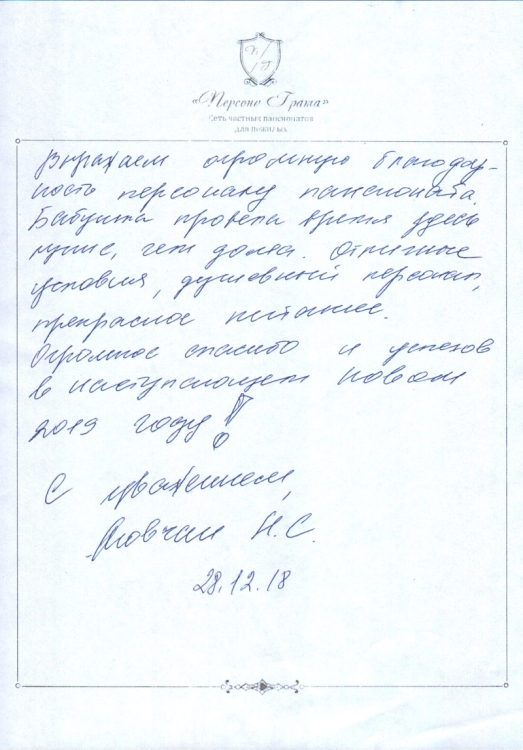 П П
«Персоно Грата»
Сеть частных пансионатов
для пожилых
Выражаем огромную благодар-
ность персоналу пансионата.
Бабушка провела время здесь
лучше, чем дома. Отличные
условия, душевный персонал,
прекрасное питание.
Огромное спасибо и успехов
в наступающем Новом
2019 году!
С уважением,
Мовчан Н.С.
28.12.18